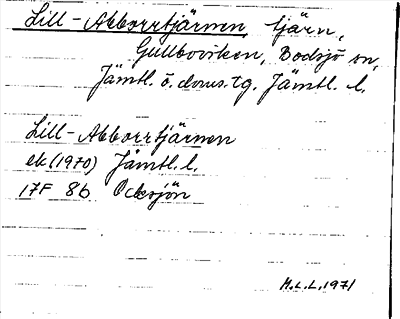 Lill-Abborrtjärnen, tjärn,
Gullboviken, Bodsjö sn,
Jämtl. ö. doms. tg. Jämtl. l.
Lill-Abborrtjärnen
ek (1970) Jämtl. l.
17F 8b Ocksjön
H.L.L. 1971